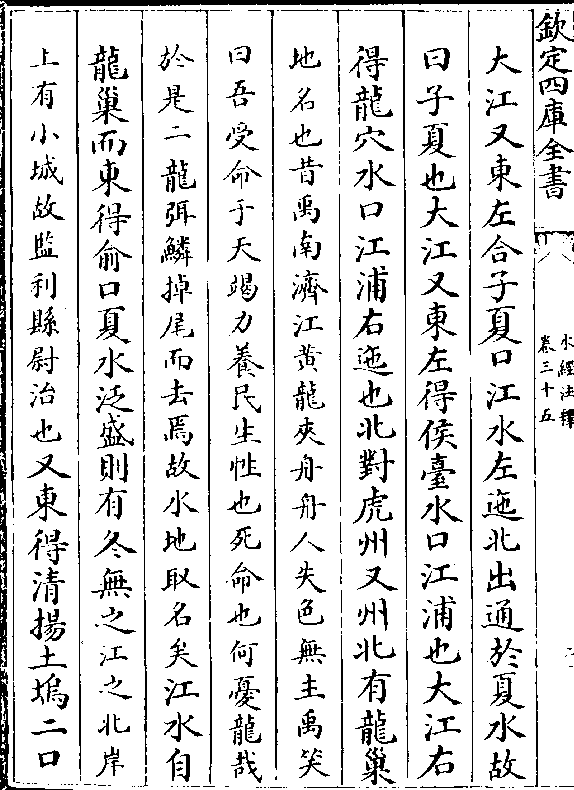 欽定四庫全書
水經注釋
卷三十五
大江又東左合子夏口江水左迆北出通於夏水故
曰子夏也大江又東左得侯臺水口江浦也大江右
得龍穴水口江浦右迆也北對虎州又州北有龍巢
地名也昔禹南濟江黃龍夾舟舟人失色無主禹笑
曰吾受命于天竭力養民生性也死命也何憂龍哉
於是二龍弭鱗掉尾而去焉故水地取名矣江水自
龍巢而東得俞口夏水泛盛則有冬無之江之北岸
上有小城故監利縣尉治也又東得清揚土塢二口